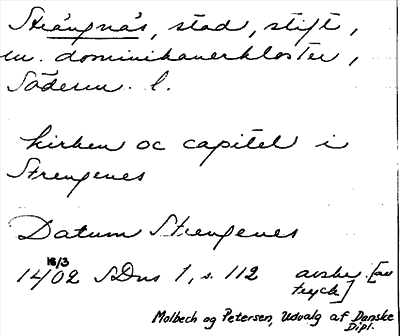 Strängnäs, stad, stift,
m. dominikanerkloster,
Söderm. l.
kirken oc capitel i
Strengenes
Datum Strengenes
18/3
1402 SDns 1, s. 112 avskr. [av
tryck]
Molbech og Petersen, Udvalg af Danske
Dipl.